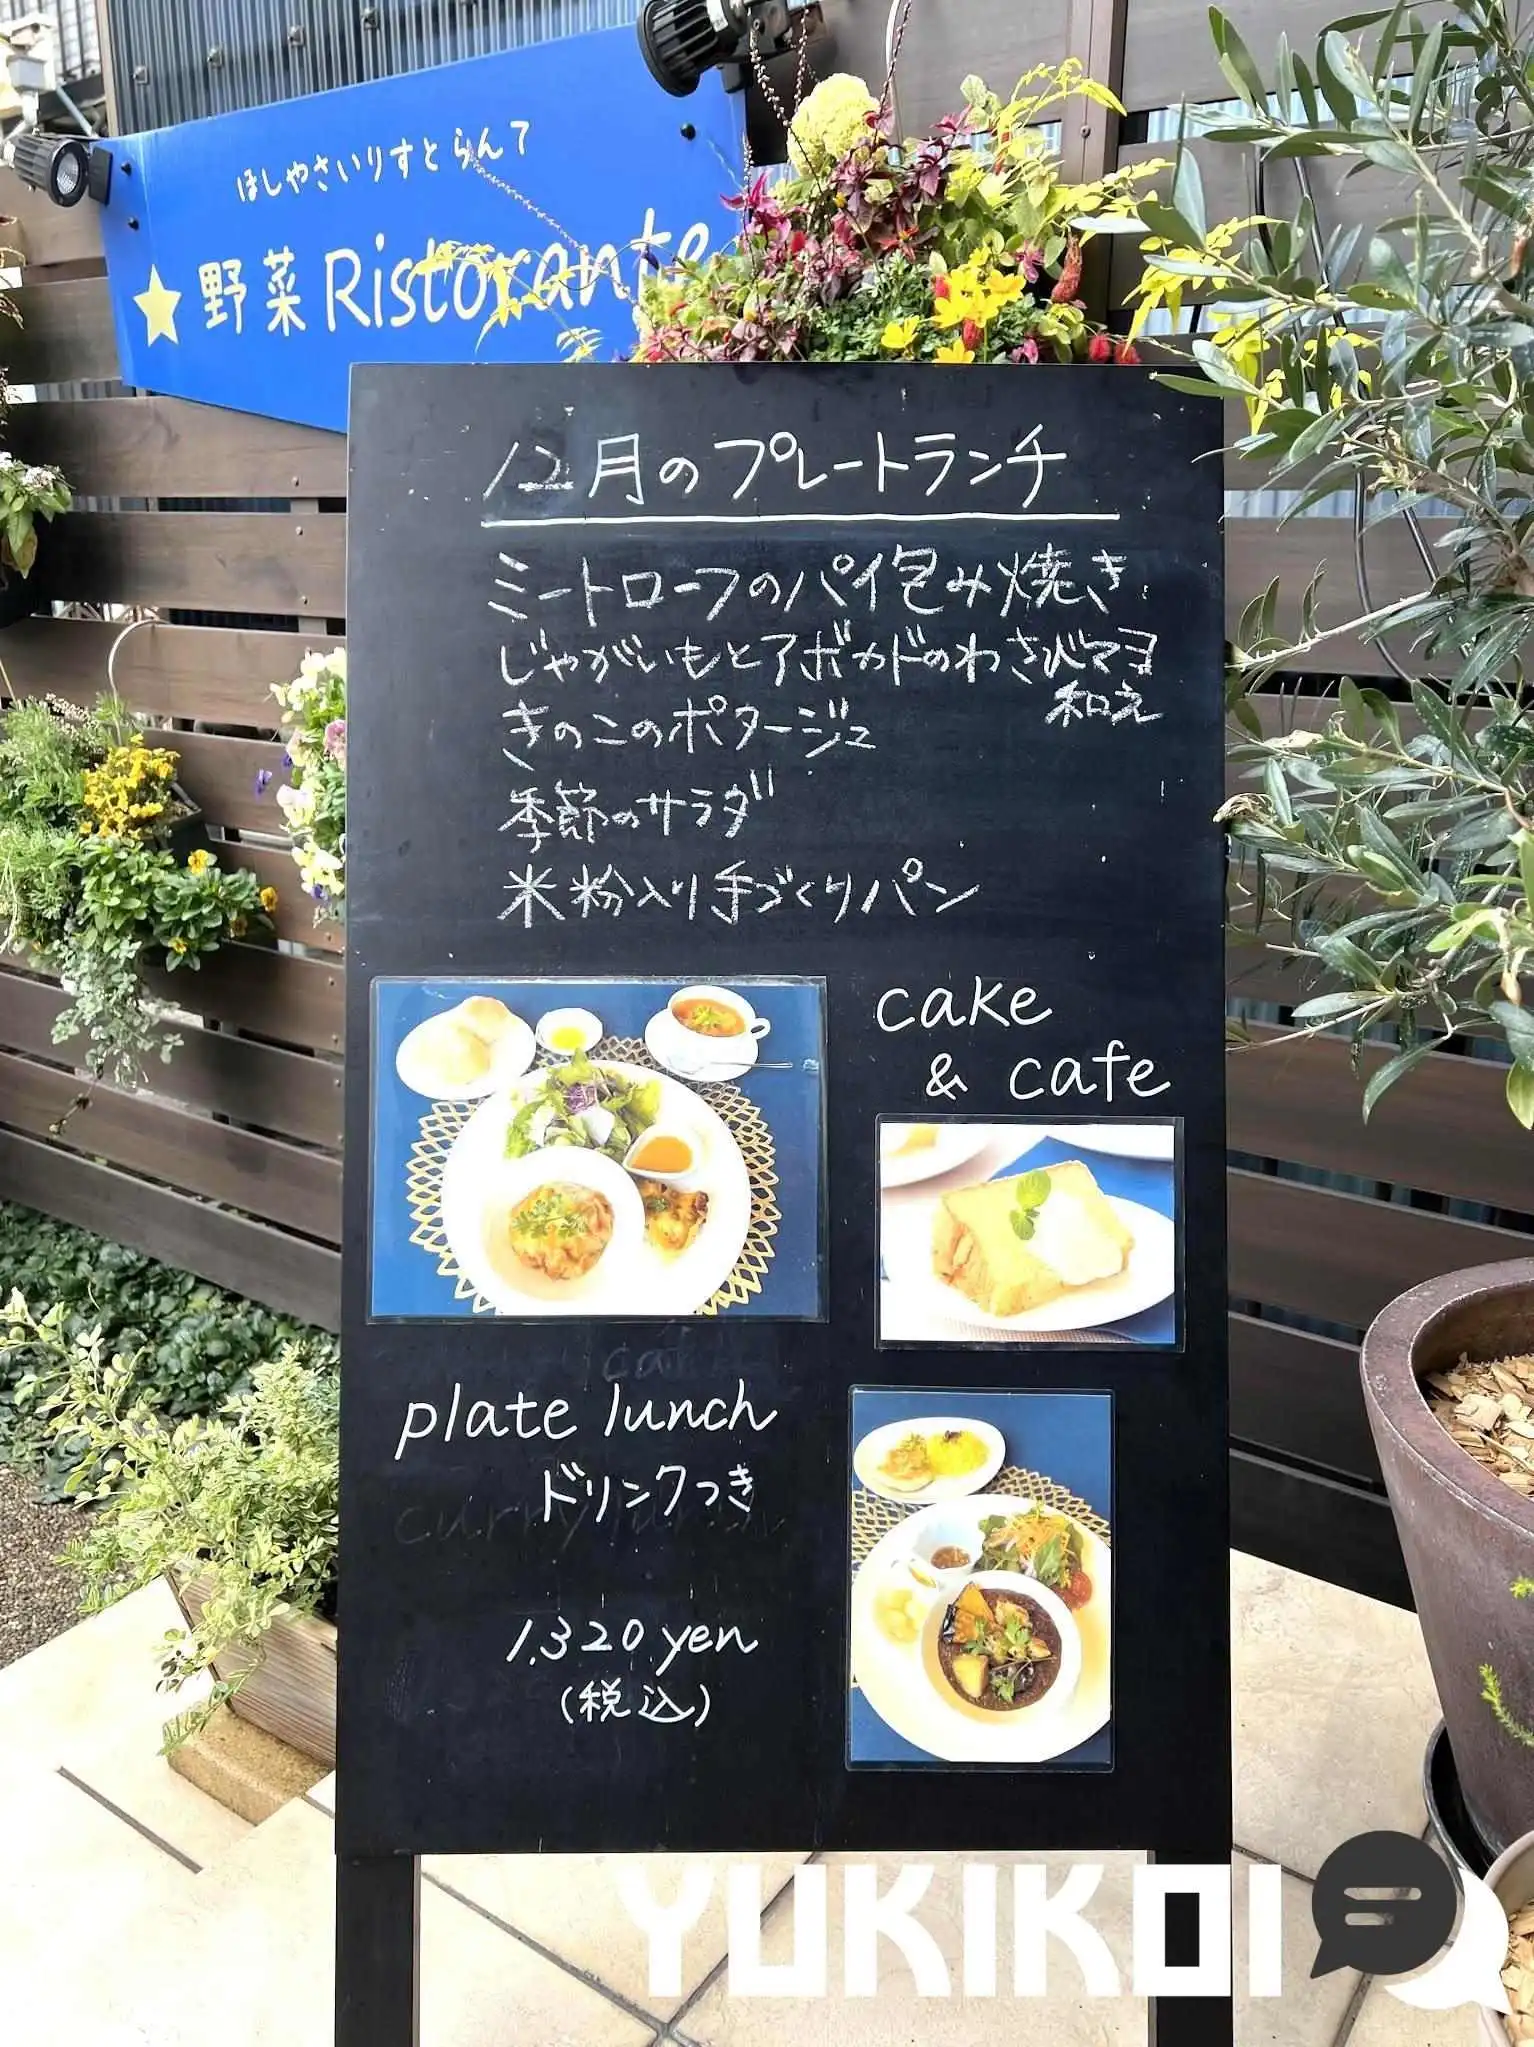 ほしやさいりすとらんて
★野菜Ristorante
12月のプレートランチ
ミートローフのパイ包み焼き
じゃがいもとアボカドのわさびマヨ
和え
きのこのポタージュ
季節のサラダ
米粉入り手づくりパン
cake
& cafe
plate lunch
ドリンクつき
1.320 yen
(税込)
YUKIKOI